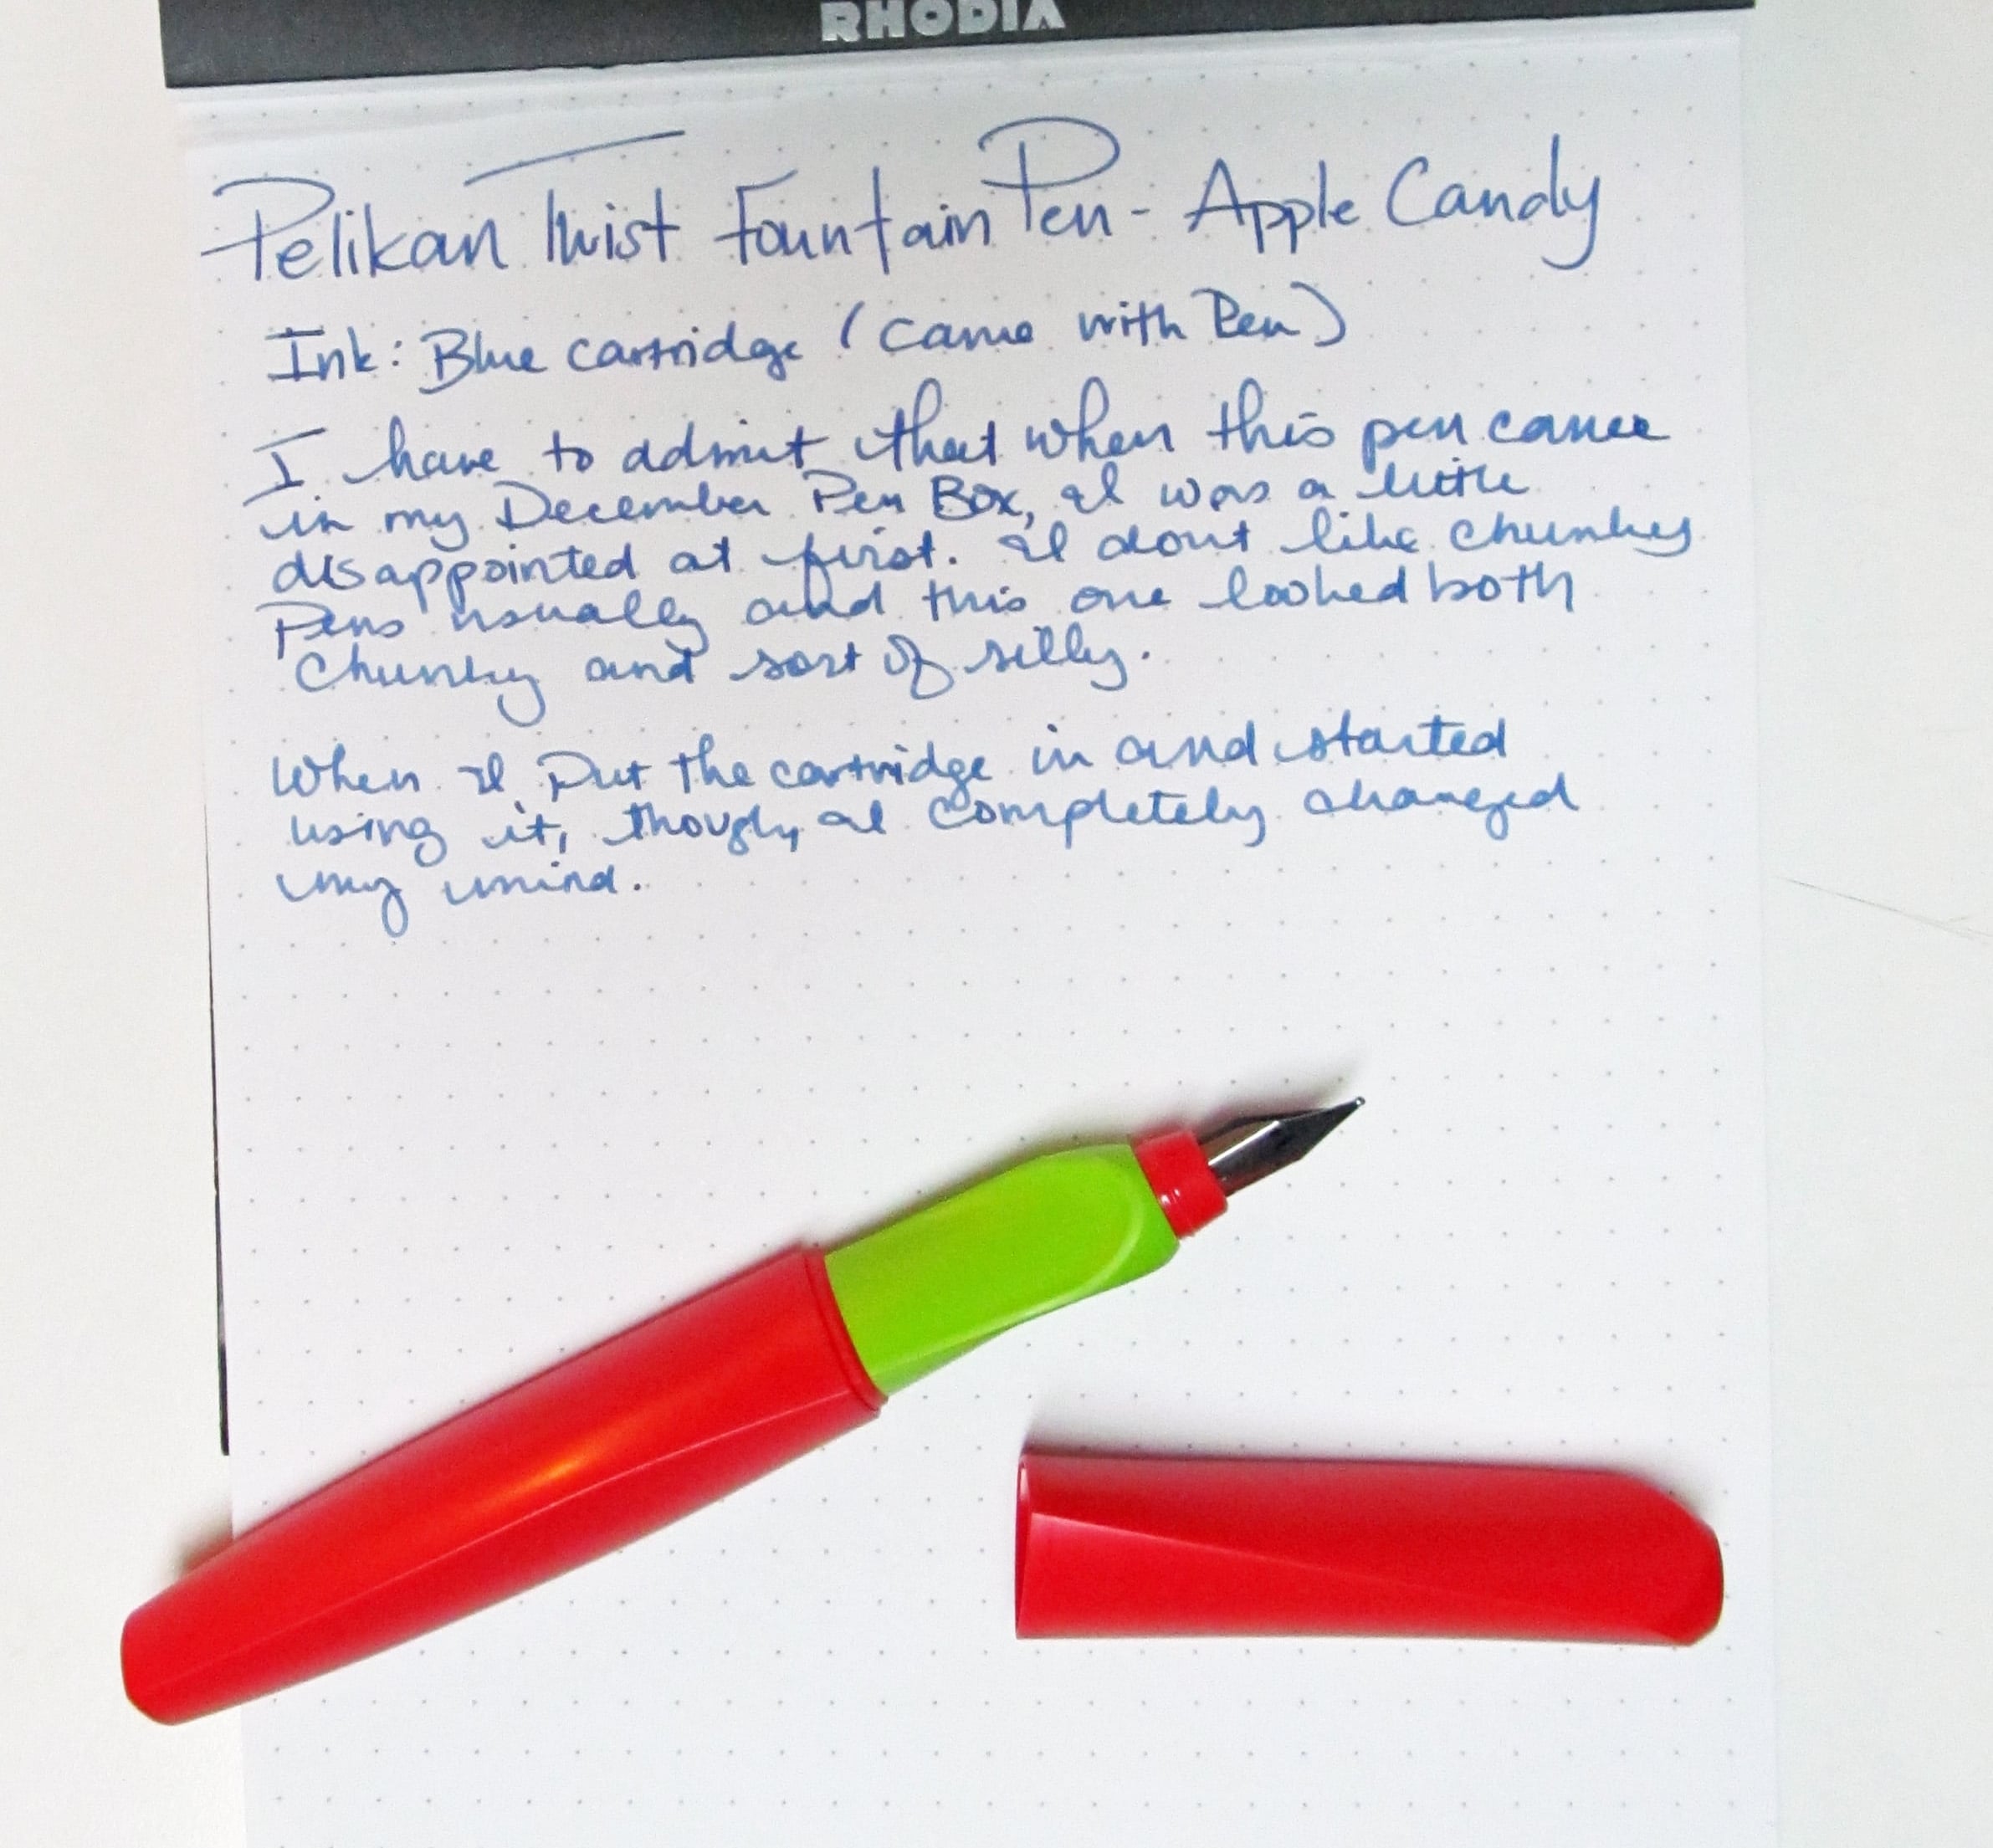 RHODIA
Pelikan Twist Fountain Pen - Apple Candy
Ink: Blue cartridge (came with Pen)
I have to admit that when this pen came
in my December Pen Box, I was a little
disappointed at first. I dont like chunky
Pens usually and this one looked both
chunky and sort of silly.
When I put the cartridge in and started
using it, though, I completely changed
my mind.